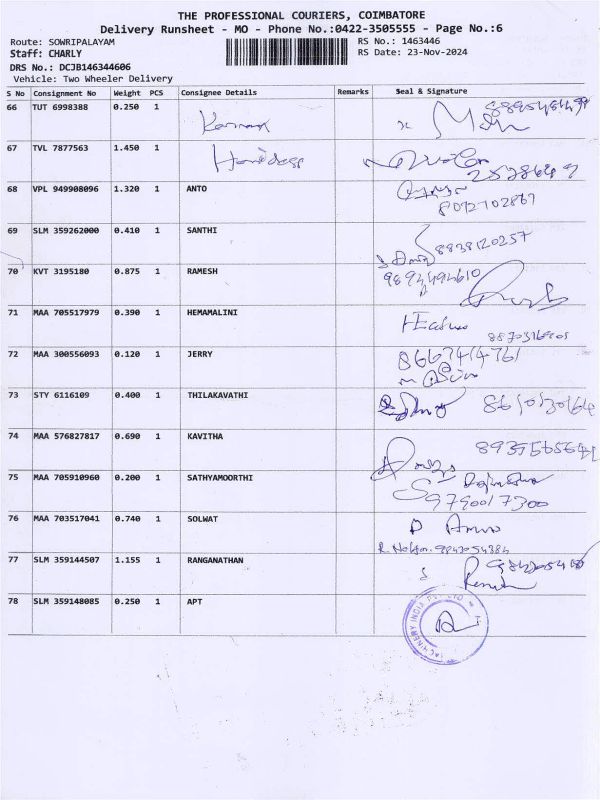 THE PROFESSIONAL COURIERS, COIMBATORE
Delivery Runsheet - MO - Phone No.:0422-3505555 - Page No.:6
Route: SOWRIPALAYAM RS No.: 1463446
Staff: CHARLY RS Date: 23-Nov-2024
DRS No.: DCJB146344606
Vehicle: Two Wheeler Delivery
S No Consignment No Weight PCS Consignee Details Remarks Seal & Signature
66 TUT 6998388 0.250 1
67 TVL 7877563 1.450 1
68 VPL 949908096 1.320 1 ANTO
8072702867
69 SLM 359262000 0.410 1 SANTHI
8838120257
70 KVT 3195180 0.875 1 RAMESH
71 MAA 705517979 0.390 1 HEMAMALINI
72 MAA 300556093 0.120 1 JERRY
8667414761
73 STY 6116109 0.400 1 THILAKAVATHI
74 MAA 576827817 0.690 1 KAVITHA
75 MAA 705910960 0.200 1 SATHYAMOORTHI
9790017300
76 MAA 703517041 0.740 1 SOLWAT
77 SLM 359144507 1.155 1 RANGANATHAN
78 SLM 359148085 0.250 1 APT